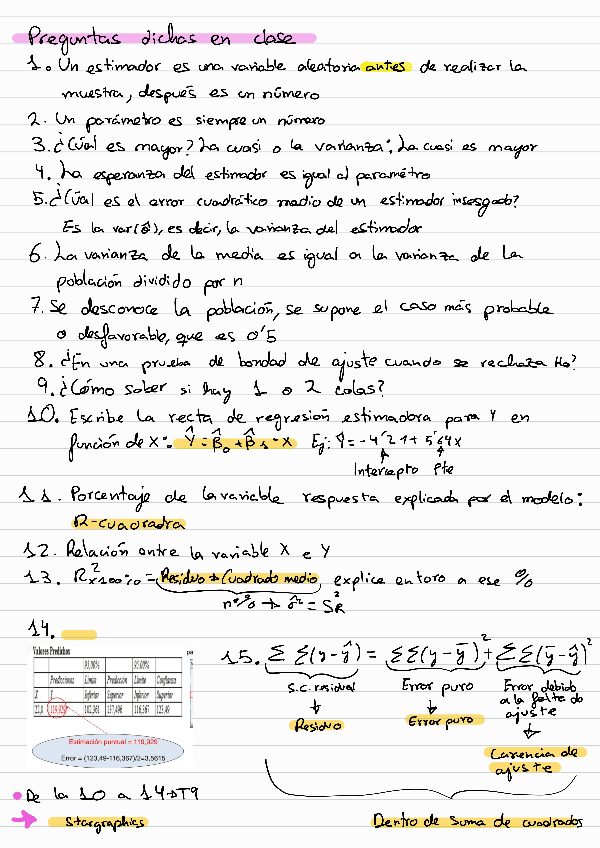 Preguntas dichas en clase
1. Un estimador es una variable aleatoria antes de realizar la
muestra, después es un número
2. Un parámetro es siempre un número
3. ¿Cúal es mayor? La cuasi o la varianza: La cuasi es mayor
4. La esperanza del estimador es igual al parámetro
5. ¿Cúal es el error cuadrático medio de un estimador insesgado?
Es la var(θ̂), es decir, la varianza del estimador
6. La varianza de la media es igual a la varianza de la
población dividido por n
7. Se desconoce la población, se supone el caso más probable
o desfavorable, que es 0'5
8. ¿En una prueba de bondad de ajuste cuando se rechaza H₀?
9. ¿Cómo saber si hay 1 o 2 colas?
10. Escribe la recta de regresión estimadora para Y en
función de X: Ŷ = β̂₀ + β̂₁ · X Ej: Ŷ = -4'21 + 5'64x
Intercepto Pte
11. Porcentaje de la variable respuesta explicada por el modelo:
R-cuadrada
12. Relación entre la variable X e Y
13. R² x100% = Residuo → Cuadrado medio explica entorno a ese %
nº% → σ̂² = S²R
14.
Valores Predichos
95,00% 95,00%
Predicciones Límite Predicción Límite Confianza
X Y Inferior Superior Inferior Superior
22,0 119,929 102,361 137,496 116,367 123,49
Estimación puntual = 119,929
Error = (123,49-116,367)/2=3,5615
15. Σ Σ(y-ŷ) = ΣΣ(y-ȳ)² + ΣΣ(ȳ-ŷ)²
S.C. residual Error puro Error debido
a la falta de
ajuste
Residuo Error puro
Carencia de
ajuste
De la 10 a 14 → T9
Stargraphics Dentro de Suma de cuadrados